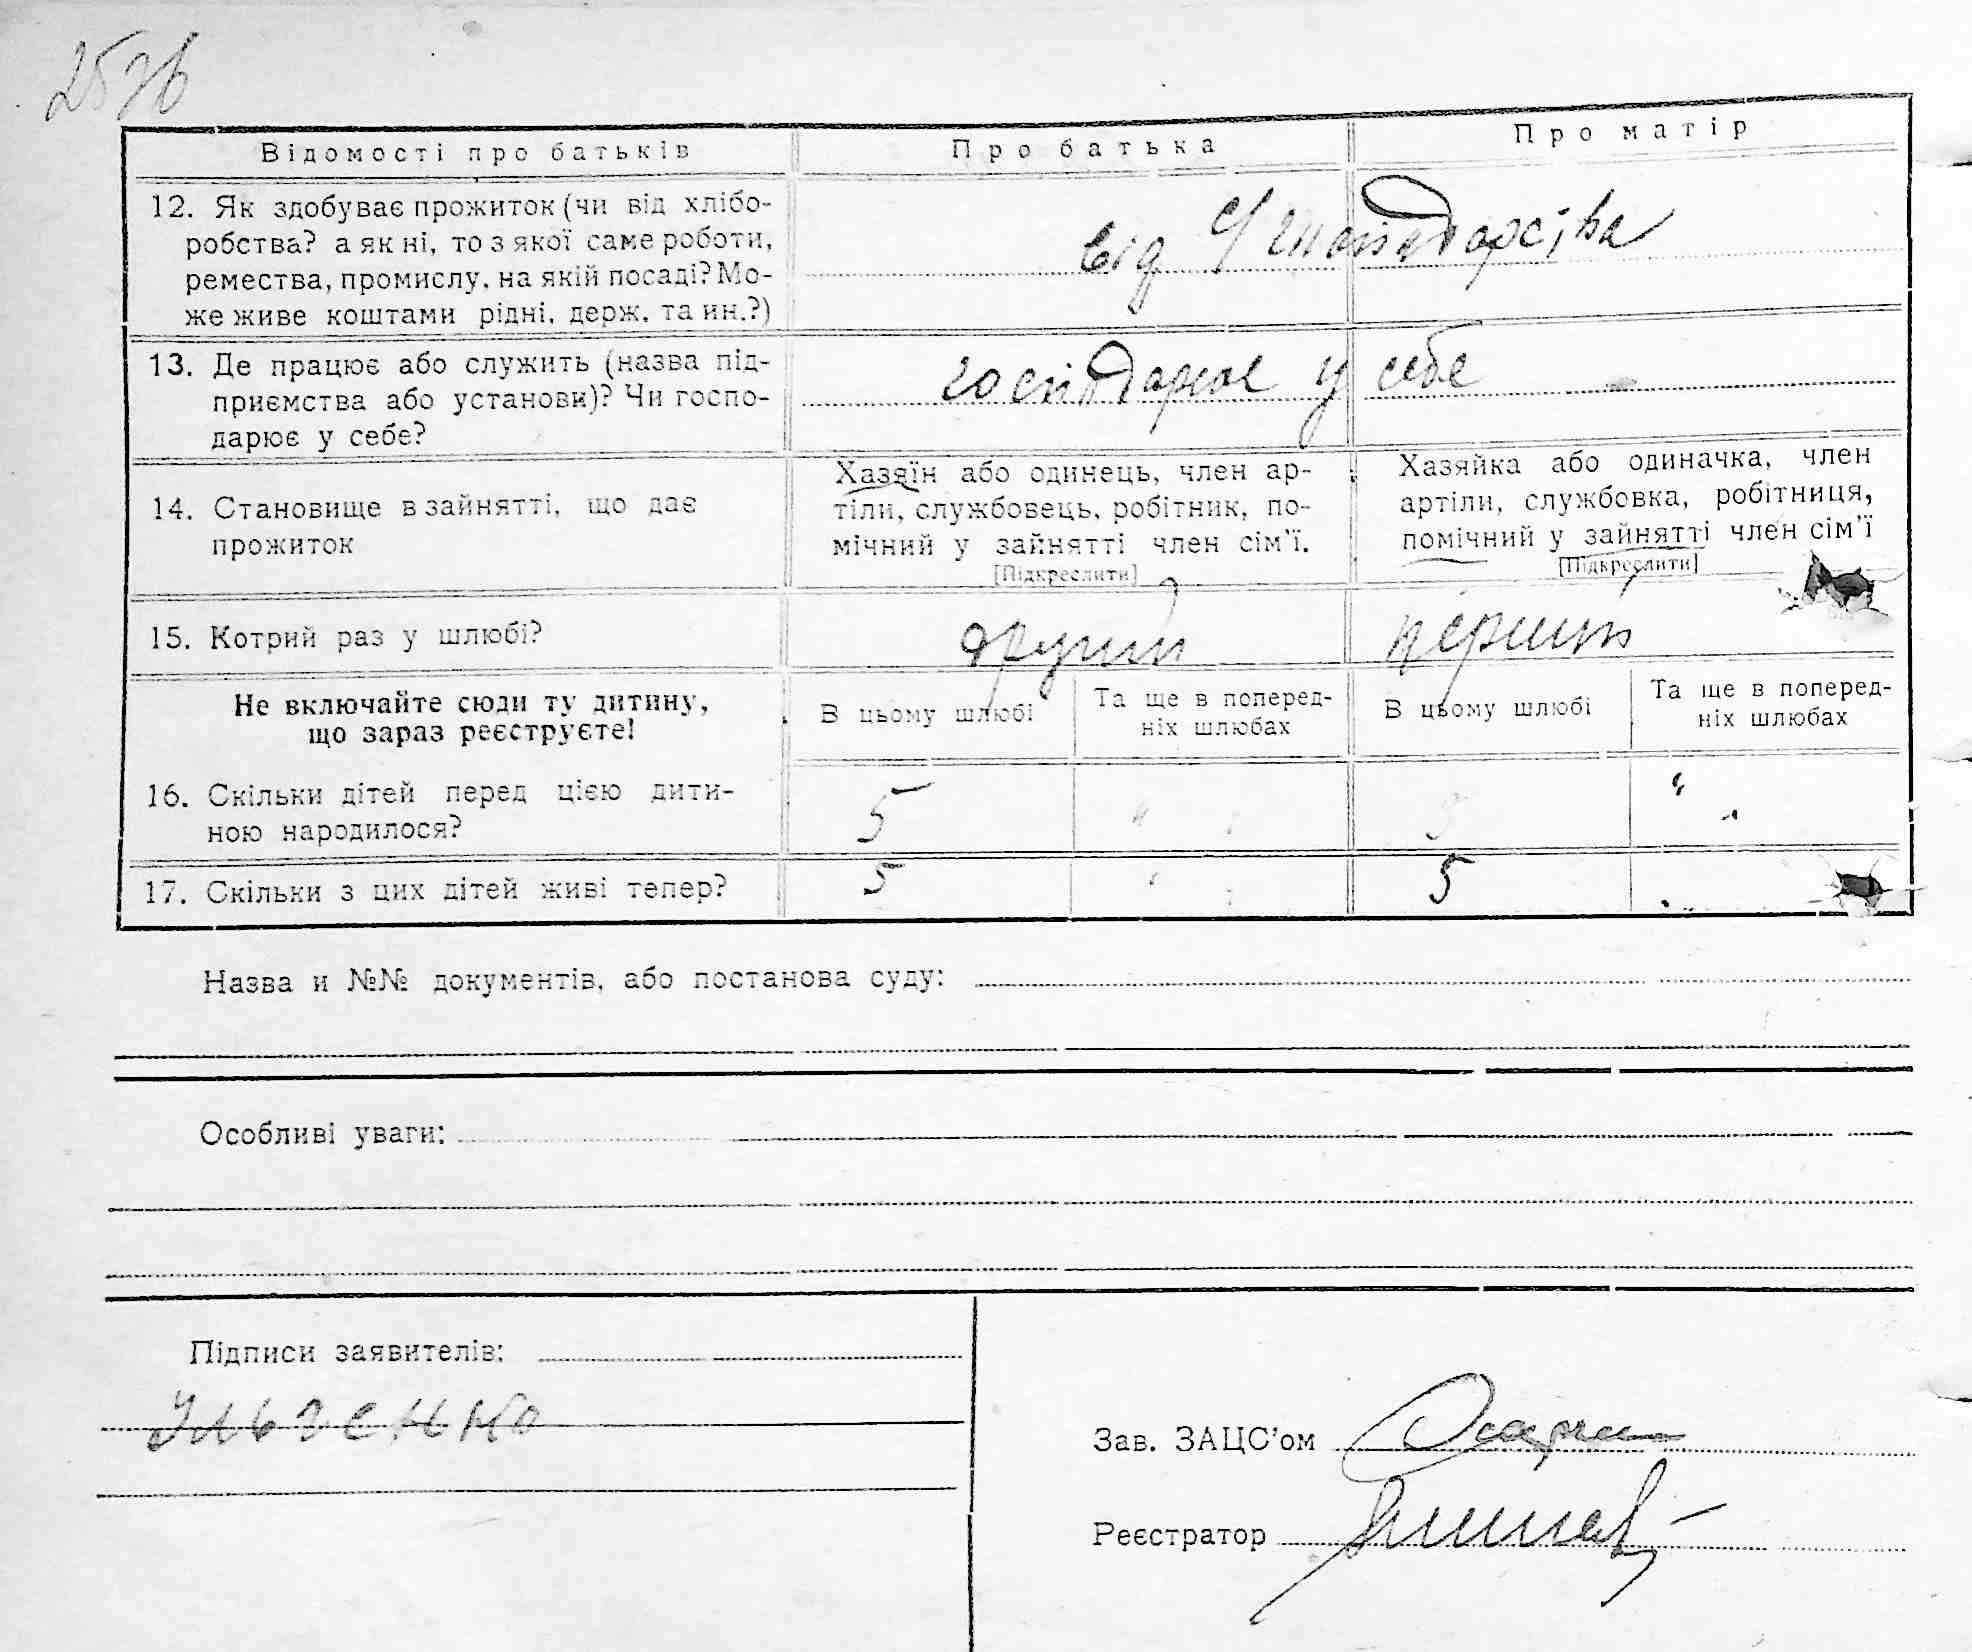 Відомості про батьків
Про батька
Про матір
12. Як здобуває прожиток (чи від хлібо-
робства? а як ні, то з якої саме роботи,
ремества, промислу, на якій посаді? Мо-
же живе коштами рідні, держ. та ин.?)
від с/господарства
13. Де працює або служить (назва під-
приємства або установи)? Чи госпо-
дарює у себе?
господарює у себе
14. Становище в зайнятті, що дає
прожиток
Хазяїн або одинець, член ар-
тіли, службовець, робітник, по-
мічний у зайнятті член сім'ї.
[Підкреслити]
Хазяйка або одиначка, член
артіли, службовка, робітниця,
помічний у зайнятті член сім'ї
[Підкреслити]
15. Котрий раз у шлюбі?
другий
перший
Не включайте сюди ту дитину,
що зараз реєструєте!
В цьому шлюбі
Та ще в поперед-
ніх шлюбах
В цьому шлюбі
Та ще в поперед-
ніх шлюбах
16. Скільки дітей перед цією дити-
ною народилося?
5 " 5 "
17. Скільки з цих дітей живі тепер?
5 " 5 "
Назва и №№ документів, або постанова суду:
Особливі уваги:
Підписи заявителів:
Зав. ЗАЦС'ом
Реєстратор